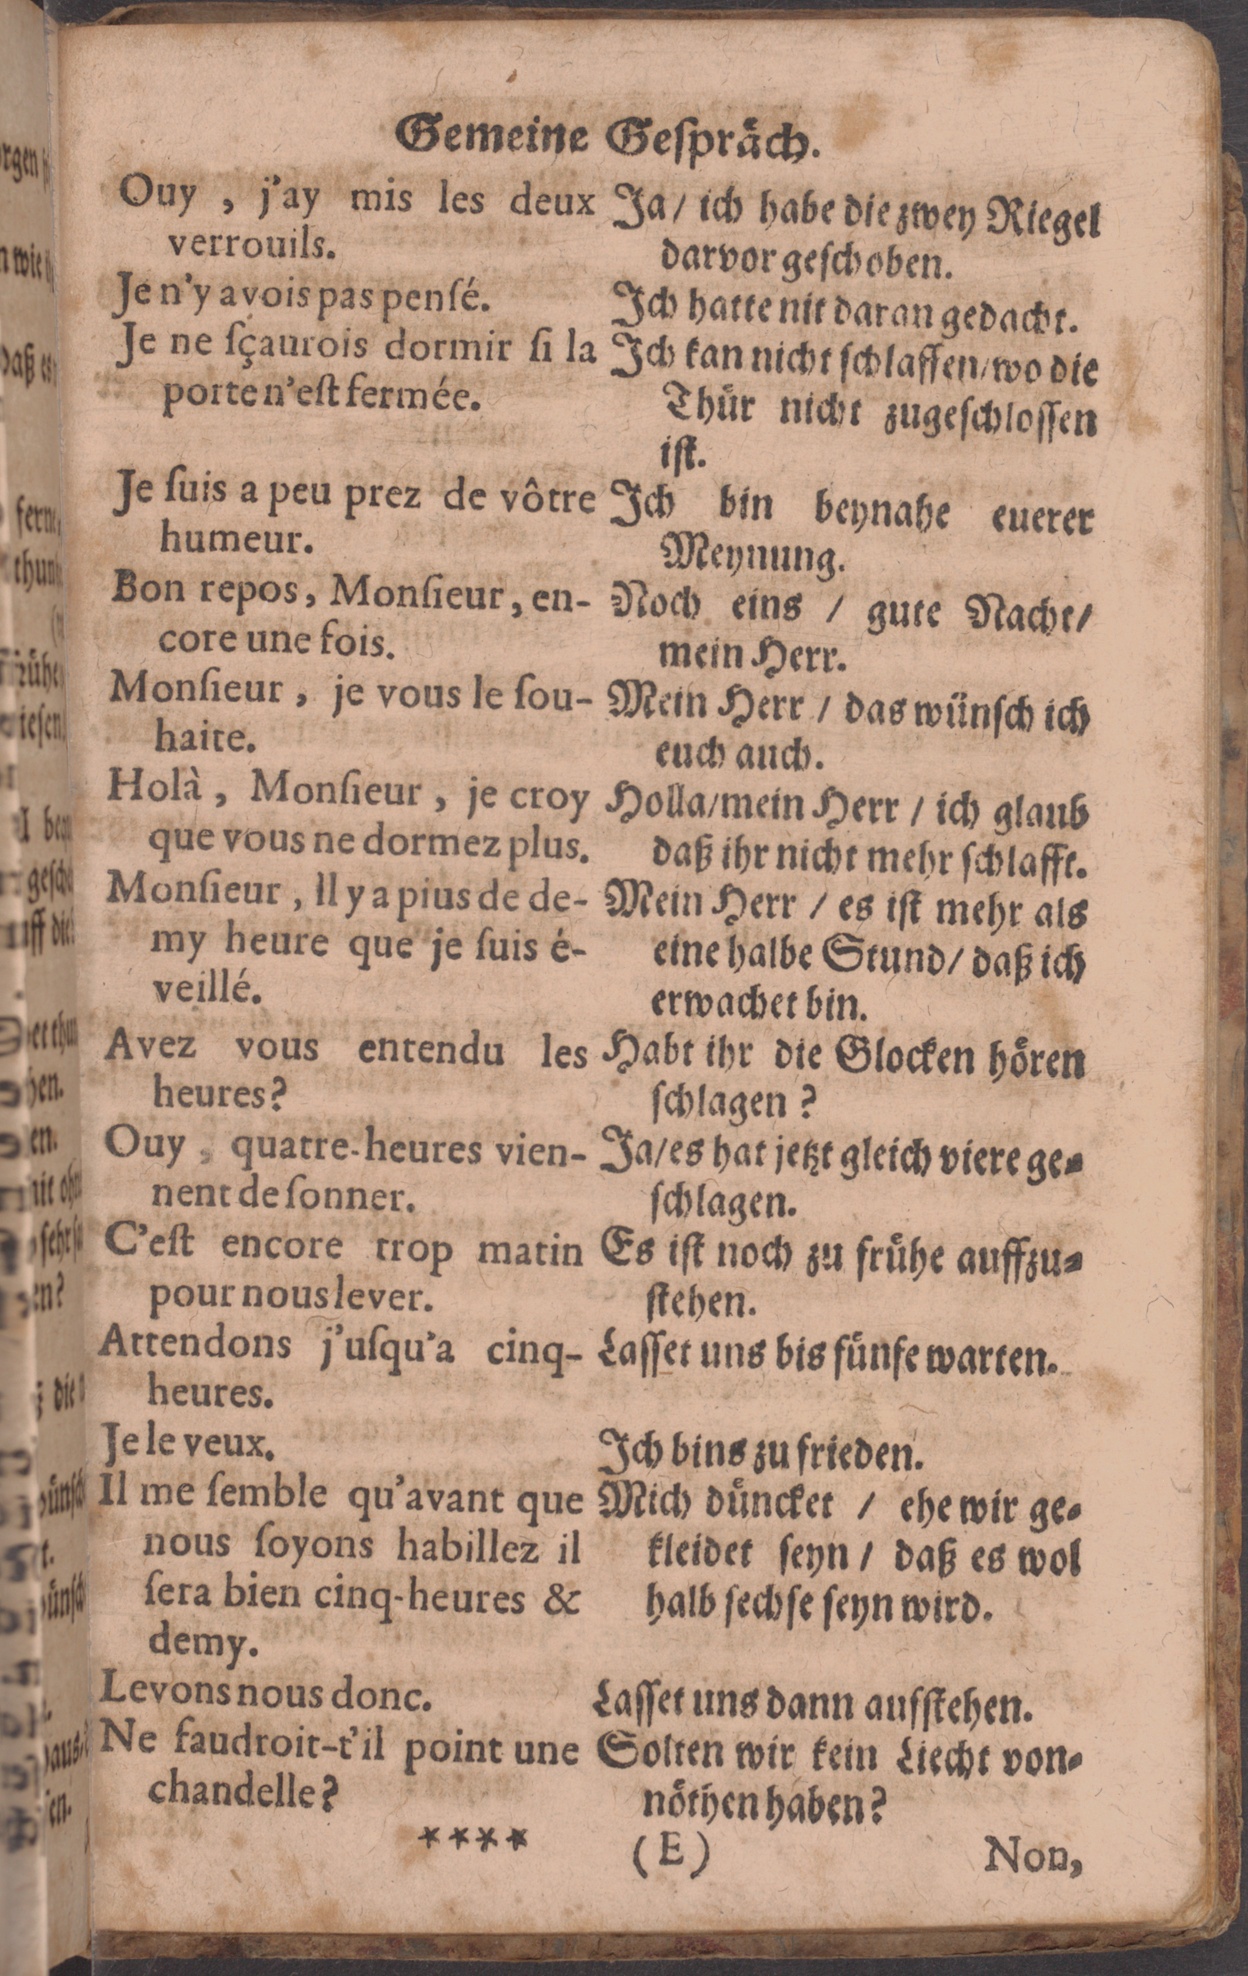 Gemeine Geſpräch.
Ouy , j'ay mis les deux
verrouils.
Je n'y avois pas penſé.
Je ne ſçaurois dormir ſi la
porte n'eſt fermée.
Je ſuis a peu prez de vôtre
humeur.
Bon repos, Monſieur, en-
core une fois.
Monſieur , je vous le ſou-
haite.
Holà , Monſieur , je croy
que vous ne dormez plus.
Monſieur , Il y a pius de de-
my heure que je ſuis é-
veillé.
Avez vous entendu les
heures?
Ouy , quatre-heures vien-
nent de ſonner.
C'eſt encore trop matin
pour nous lever.
Attendons j'uſqu'a cinq-
heures.
Je le veux.
Il me ſemble qu'avant que
nous ſoyons habillez il
ſera bien cinq-heures &
demy.
Levons nous donc.
Ne faudroit-t'il point une
chandelle?
Ja/ ich habe die zwey Riegel
darvor geſchoben.
Ich hatte nit daran gedacht.
Ich kan nicht ſchlaffen/ wo die
Thür nicht zugeſchloſſen
iſt.
Ich bin beynahe euerer
Meynung.
Noch eins / gute Nacht/
mein Herr.
Mein Herr / das wünſch ich
euch auch.
Holla/mein Herr / ich glaub
daß ihr nicht mehr ſchlafft.
Mein Herr / es iſt mehr als
eine halbe Stund/ daß ich
erwachet bin.
Habt ihr die Glocken hören
ſchlagen ?
Ja/es hat jetzt gleich viere ge-
ſchlagen.
Es iſt noch zu frühe auffzu-
ſtehen.
Laſſet uns bis fünfe warten.
Ich bins zu frieden.
Mich düncket / ehe wir ge-
kleidet ſeyn / daß es wol
halb ſechſe ſeyn wird.
Laſſet uns dann aufſtehen.
Solten wir kein Liecht von-
nöthen haben?
**** (E) Non,